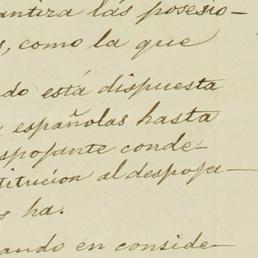 antiza las posesio-
s, como la que
do está dispuesta
españolas hasta
spojante conde
titucion al despoja-
s ha.
ando en conside-